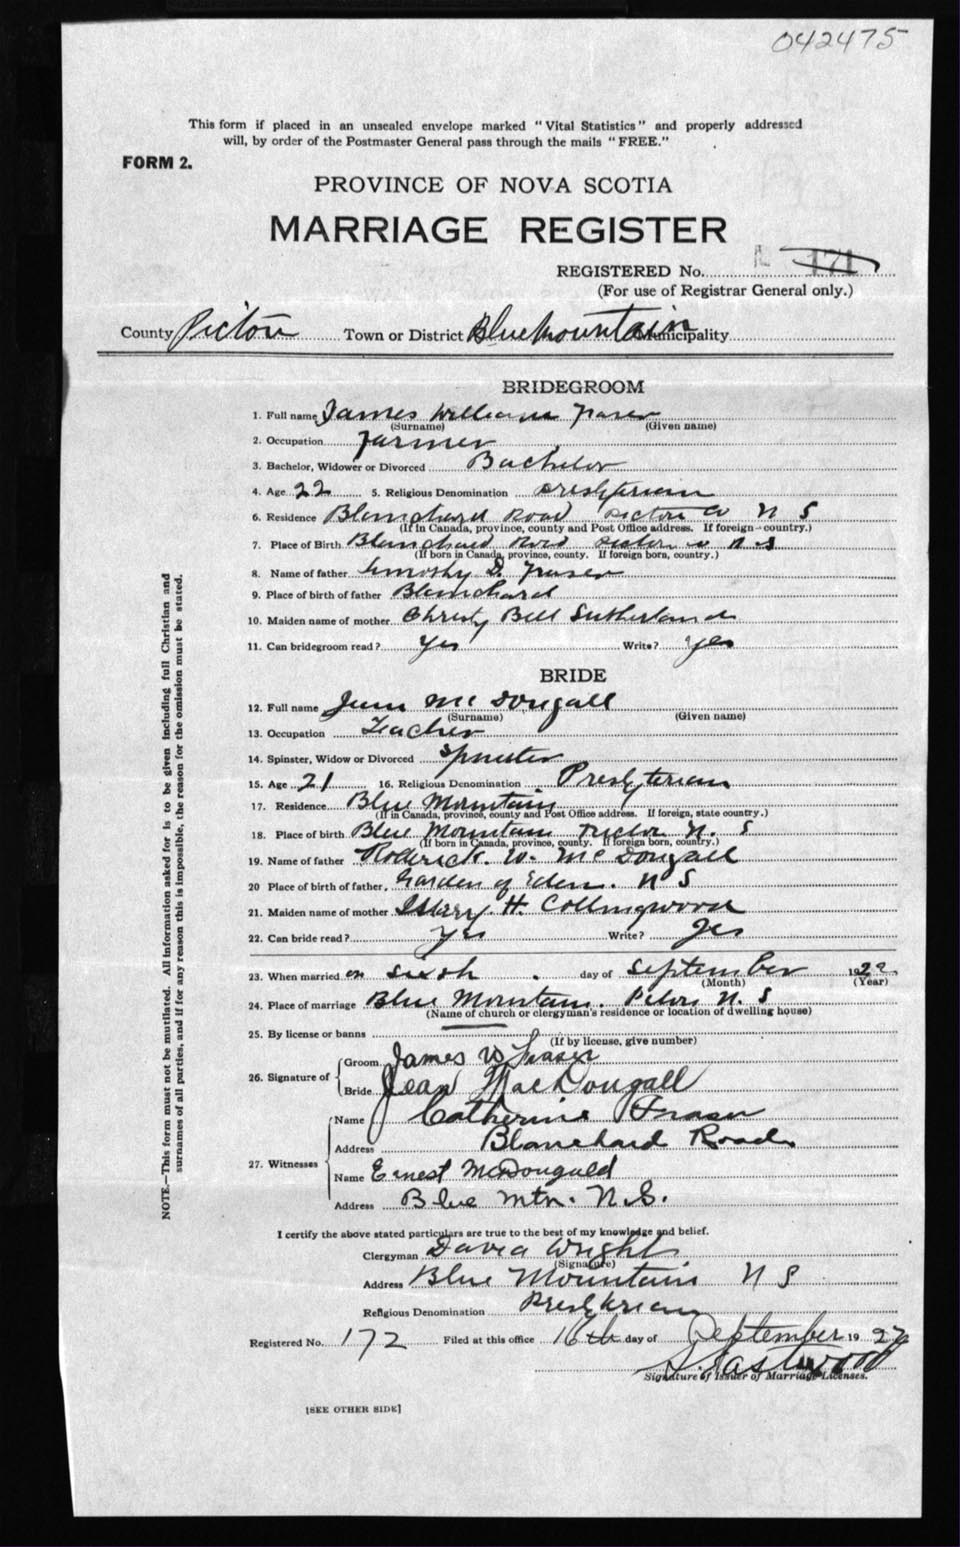 042475
This form if placed in an unsealed envelope marked "Vital Statistics" and properly addressed
will, by order of the Postmaster General pass through the mails "FREE."
FORM 2.
PROVINCE OF NOVA SCOTIA
MARRIAGE REGISTER
REGISTERED No. 171
(For use of Registrar General only.)
County Pictou Town or District Blue Mountain Municipality
BRIDEGROOM
1. Full name James William Fraser
(Surname) (Given name)
2. Occupation Farmer
3. Bachelor, Widower or Divorced Bachelor
4. Age 22 5. Religious Denomination Presbyterian
6. Residence Blanchard Road Pictou Co N S
(If in Canada, province, county and Post Office address. If foreign country.)
7. Place of Birth Blanchard Road Pictou Co N S
(If born in Canada, province, county. If foreign born, country.)
8. Name of father Timothy D. Fraser
9. Place of birth of father Blanchard
10. Maiden name of mother Christy Bell Sutherland
11. Can bridegroom read? Yes Write? Yes
BRIDE
12. Full name McDougall
(Surname) (Given name)
13. Occupation Teacher
14. Spinster, Widow or Divorced Spinster
15. Age 21 16. Religious Denomination Presbyterian
17. Residence Blue Mountain
(If in Canada, province, county and Post Office address. If foreign, state country.)
18. Place of birth Blue Mountain Pictou N. S
(If born in Canada, province, county. If foreign born, country.)
19. Name of father Roderick. W. McDougall
20 Place of birth of father, Garden of Eden. N S
21. Maiden name of mother Mary H. Collingwood
22. Can bride read? Yes Write? Yes
23. When married on sixth day of September 1922
(Month) (Year)
24. Place of marriage Blue Mountain. Pictou N. S
(Name of church or clergyman's residence or location of dwelling house)
25. By license or banns
(If by license, give number)
26. Signature of
Groom James W Fraser
Bride Jean MacDougall
27. Witnesses
Name Catherine Fraser
Address Blanchard Road
Name Ernest McDougald
Address Blue Mtn. N.S.
I certify the above stated particulars are true to the best of my knowledge and belief.
Clergyman David Wright
(Signature)
Address Blue Mountain N S
Religious Denomination Presbyterian
Registered No. 172 Filed at this office 16th day of September 1922
Eastwood
Signature of Issuer of Marriage Licenses.
[SEE OTHER SIDE]
NOTE.—This form must not be mutilated. All information asked for is to be given including full Christian and
surnames of all parties, and if for any reason this is impossible, the reason for the omission must be stated.